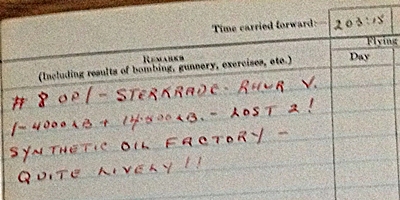 Time carried forward:— 203:15
Flying
REMARKS
(Including results of bombing, gunnery, exercises, etc.)
Day
# 8 OP/- STERKRADE - RHUR V.
1-4000LB + 14.500LB. - LOST 2!
SYNTHETIC OIL FACTORY -
QUITE LIVELY!!